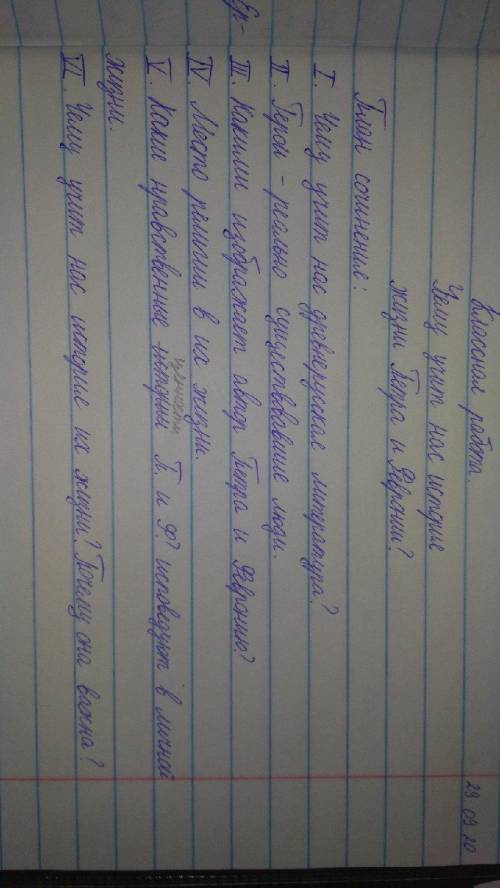 29.09.20
Классная работа.
Чему учит нас история
жизни Петра и Февронии?
План сочинения:
I. Чему учит нас древнерусская литература?
II. Герои - реально существовавшие люди.
III. Какими изображает автор Петра и Февронию?
IV. Место религии в их жизни.
V. Какие нравственные ценности П. и Ф. исповедуют в личной
жизни.
VI. Чему учит нас история их жизни? Почему она важна?